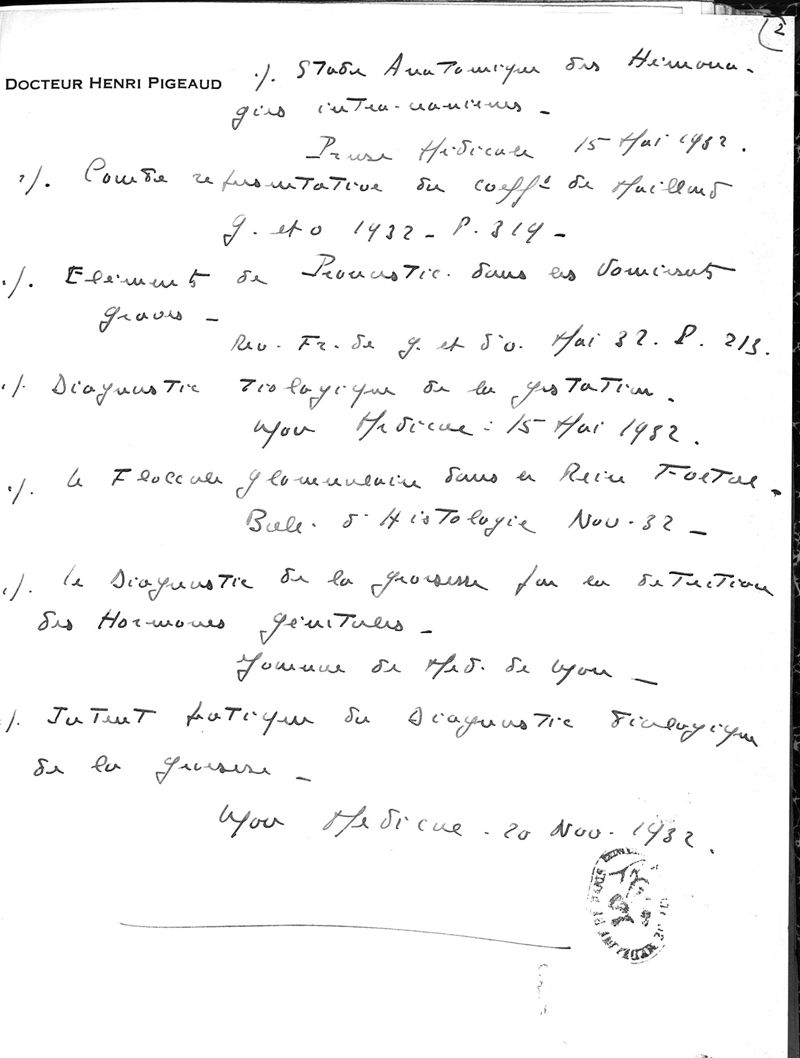 2
DOCTEUR HENRI PIGEAUD
1/. Etude Anatomique des Hémorra-
gies intra-craniennes –
Presse Médicale 15 Mai 1932.
2/. Courbe représentative du coefft de Maillard
G. et O 1932 – P. 319 –
/. Eléments de Pronostic dans les Vomissements
graves –
Rev. Fr. de G. et d'O. Mai 32. P. 213.
/. Diagnostic Biologique de la gestation.
Lyon Médical : 15 Mai 1932.
/. Le Floccule glomérulaire dans le Rein Foetal.
Bull. d'Histologie Nov. 32 –
/. Le Diagnostic de la grossesse par la détection
des Hormones génitales –
Journal de Méd. de Lyon –
/. Intérêt pratique du Diagnostic Biologique
de la grossesse –
Lyon Médical – 20 Nov. 1932.